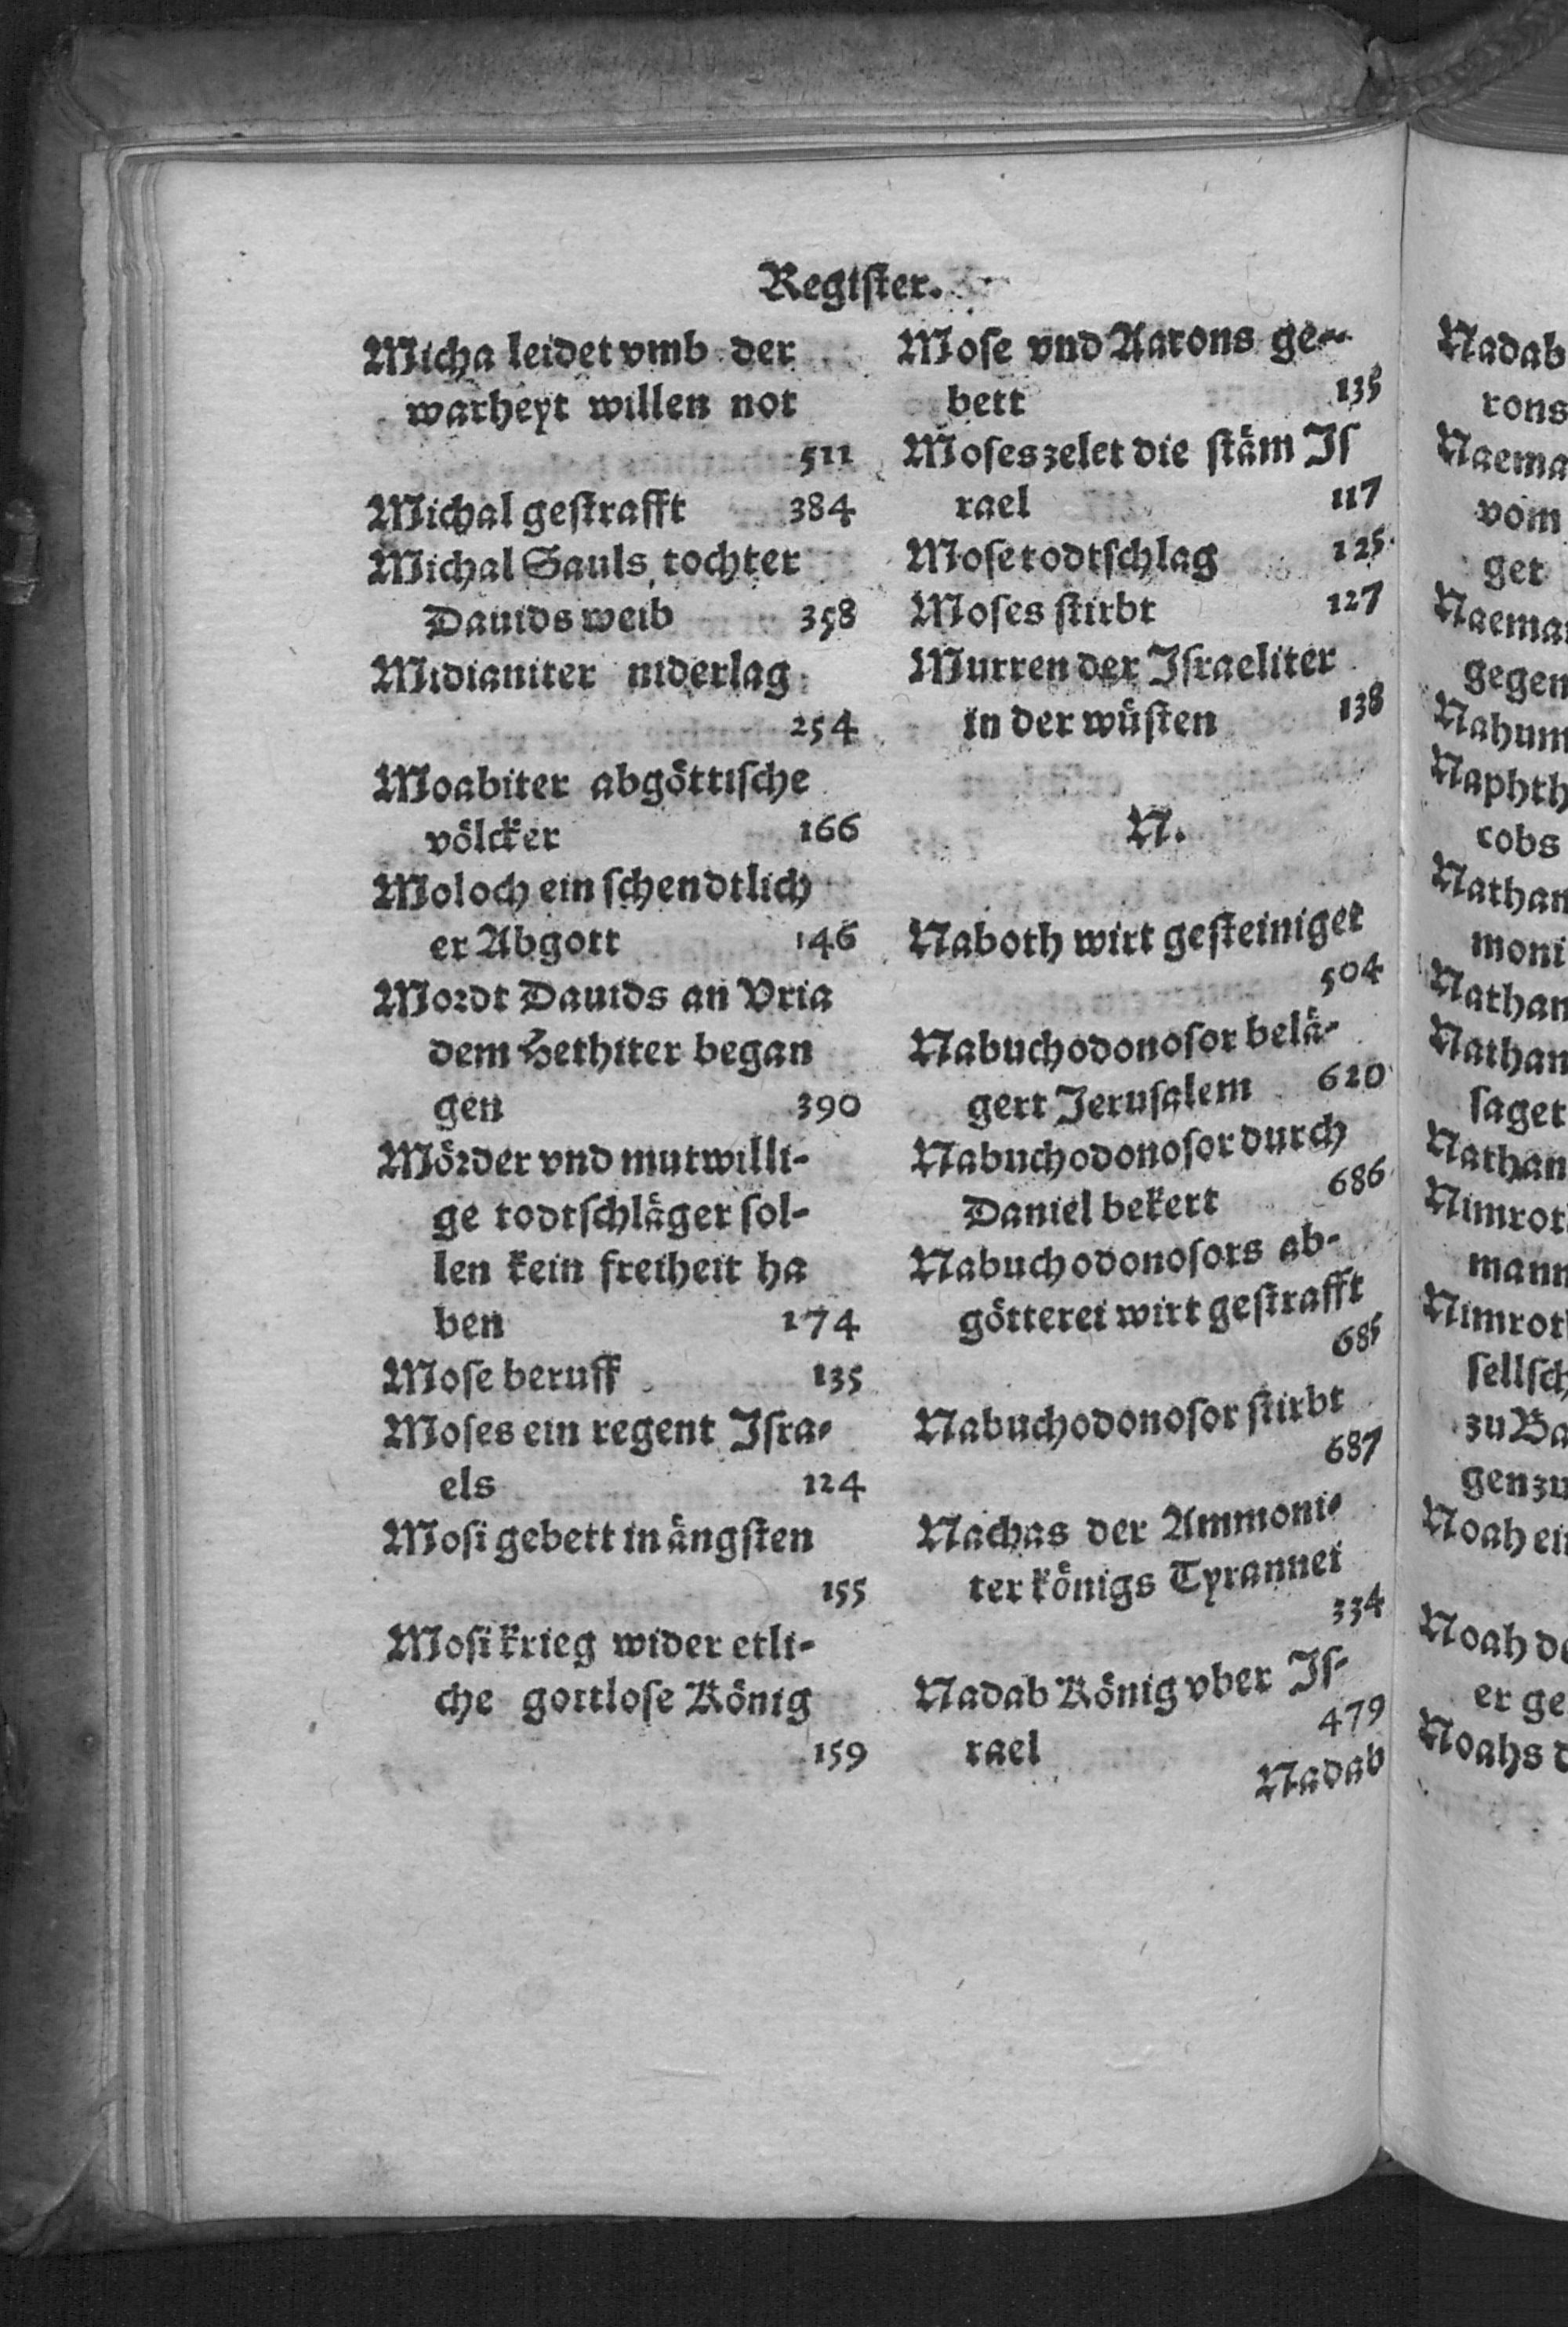 Regiſter.
Micha leidet vmb der
warheyt willen not
511
Michal geſtrafft 384
Michal Sauls tochter
Dauids weib 358
Midianiter niderlag
254
Moabiter abgöttiſche
völcker 166
Moloch ein ſchendtlich
er Abgott 146
Mordt Dauids an Vria
dem Hethiter began
gen 390
Mörder vnd mutwilli-
ge todtſchläger ſol-
len kein freiheit ha
ben 174
Moſe beruff 135
Moſes ein regent Iſra-
els 124
Moſi gebett in ängſten
155
Moſi krieg wider etli-
che gottloſe König
159
Moſe vnd Aarons ge-
bett 135
Moſes zelet die ſtäm Iſ
rael 117
Moſe todtſchlag 125
Moſes ſtirbt 127
Murren der Iſraeliter
in der wüſten 138
N.
Naboth wirt geſteiniget
504
Nabuchodonoſor belä-
gert Jeruſalem 620
Nabuchodonoſor durch
Daniel bekert 686
Nabuchodonoſors ab-
götterei wirt geſtrafft
685
Nabuchodonoſor ſtirbt
687
Nachas der Ammoni-
ter königs Tyrannei
334
Nadab König vber Iſ-
rael 479
Nadab
Nadab
rons
Naema
vom
get
Naema
gegen
Nahum
Naphth
cobs
Nathan
moni
Nathan
Nathan
ſaget
Nathan
Nimrot
mann
Nimrot
ſellſch
zu Ba
gen zu
Noah ei
Noah de
er ge
Noahs d